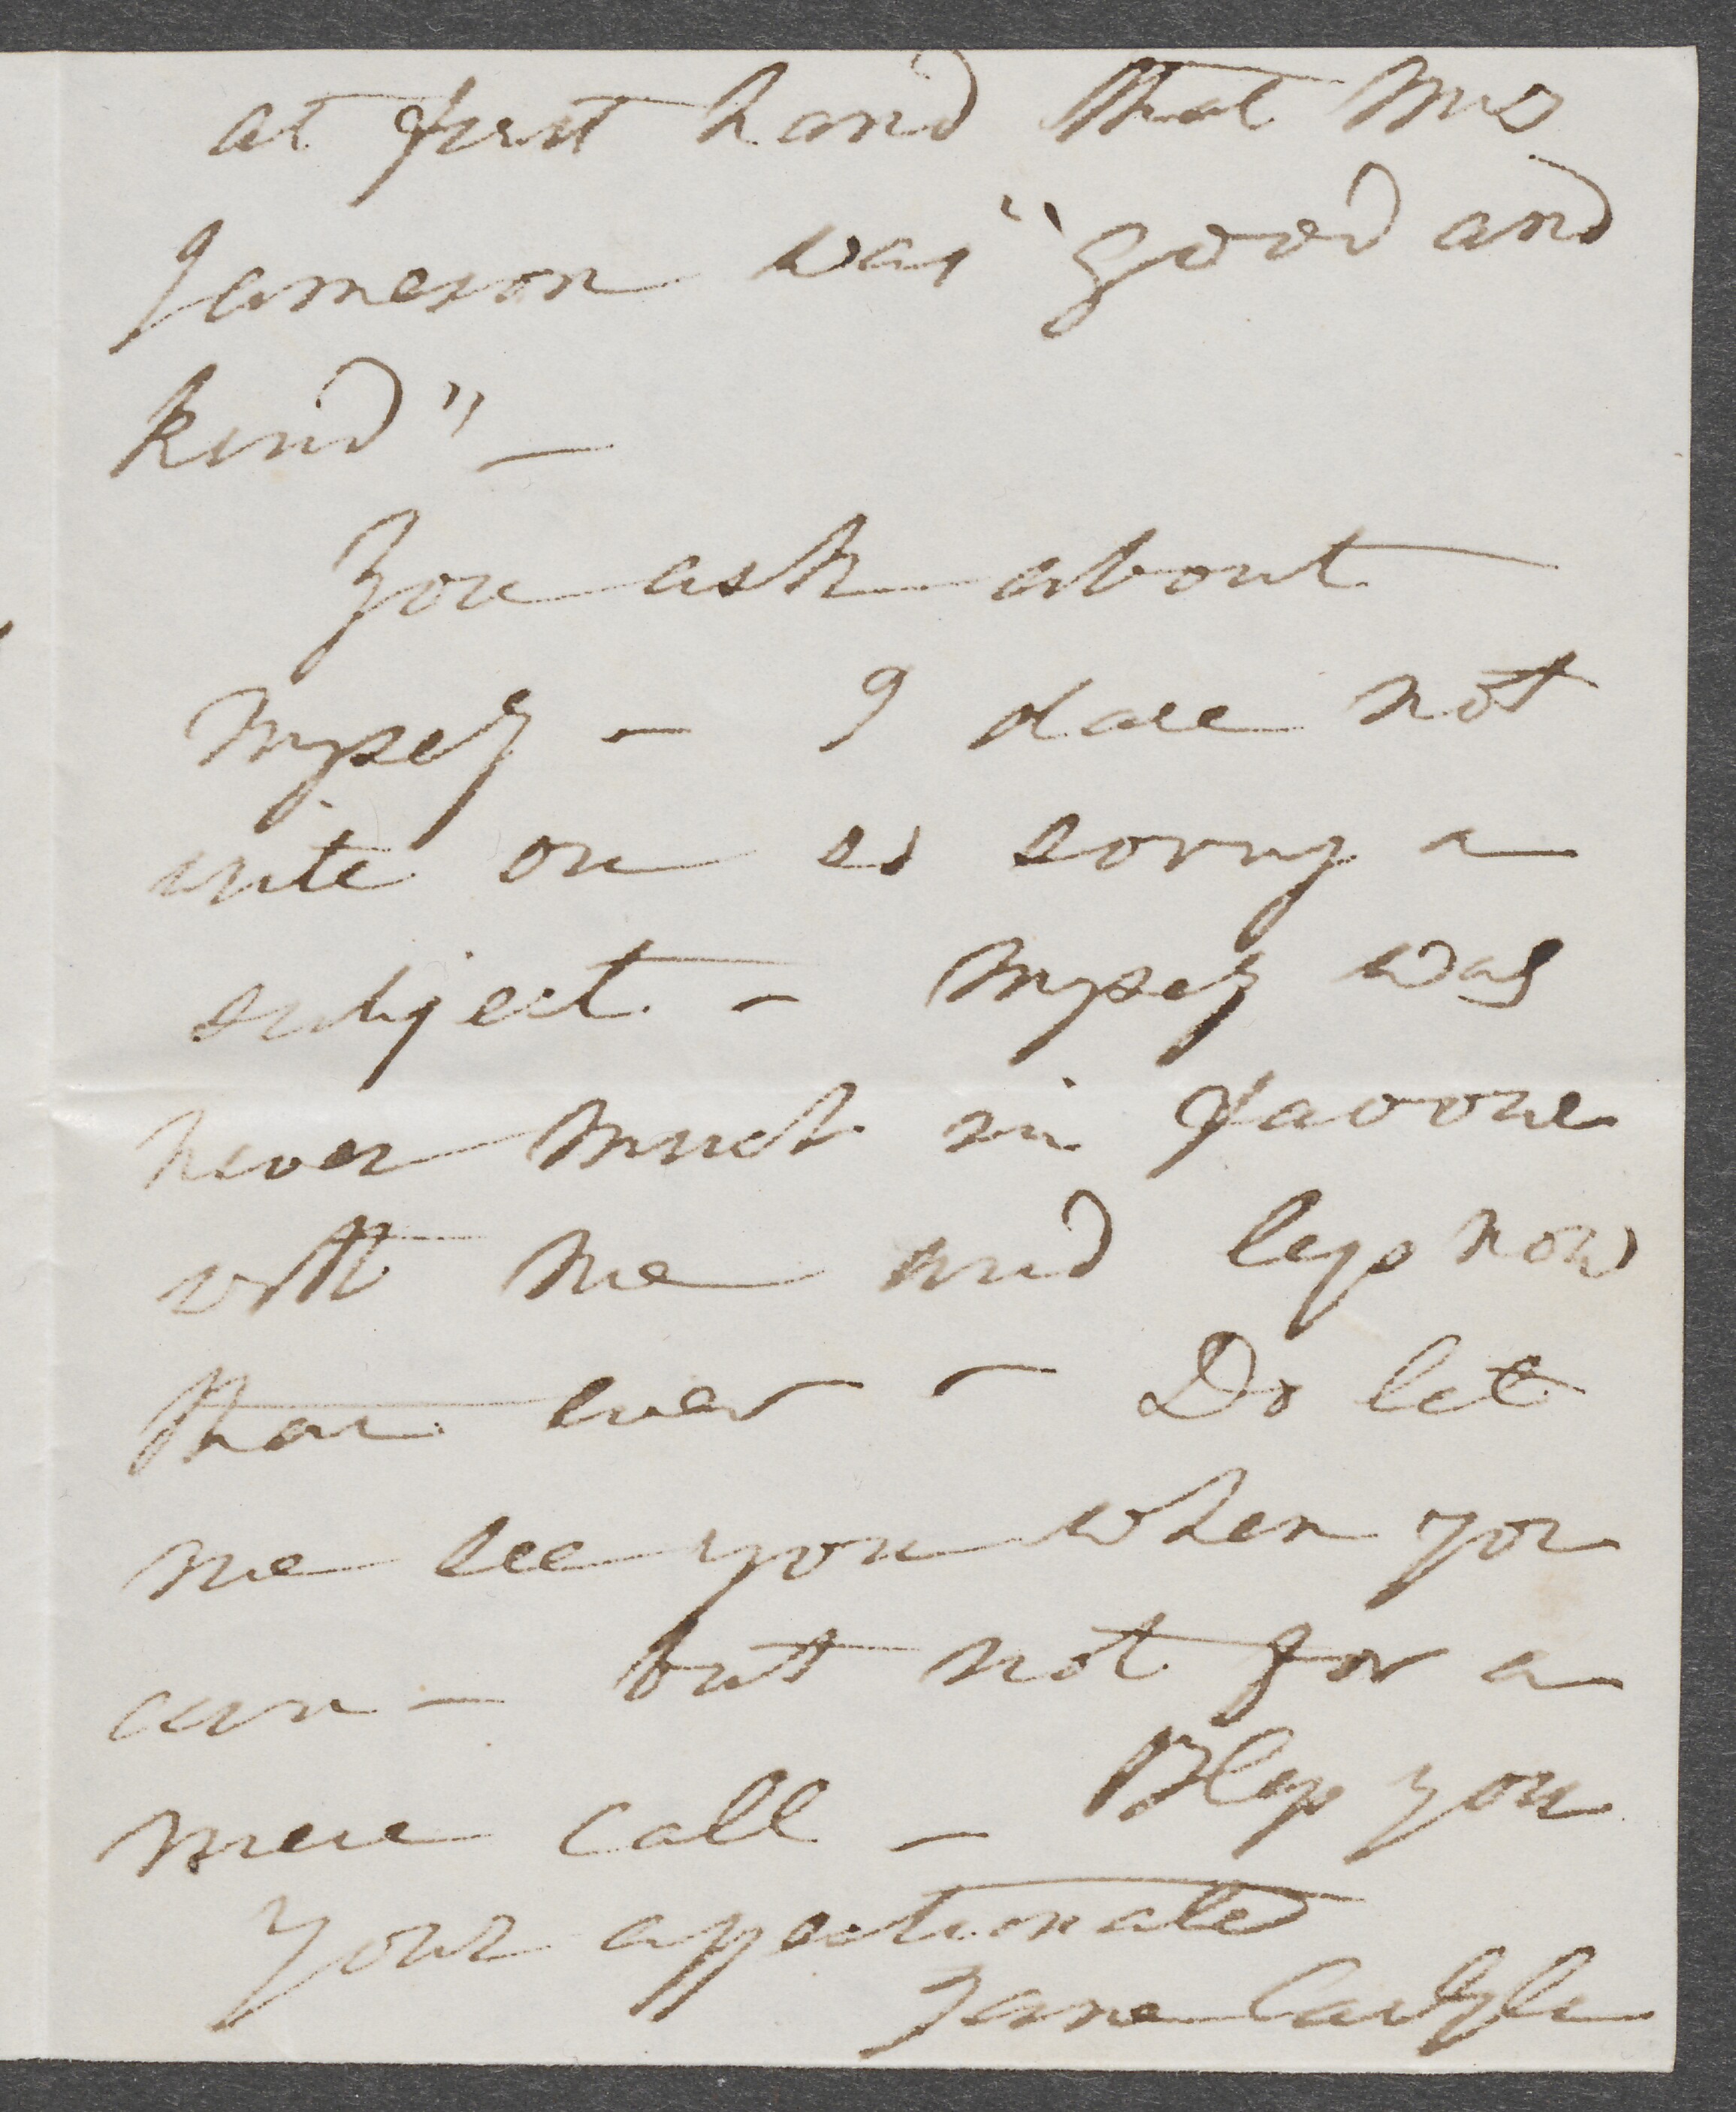 at first hand that Mrs
Jameson was "good and
kind" —
You ask about
myself — I dare not
write on so sorry a
subject — Myself was
never much in favour
with me and less now
than ever — Do let
me see you when you
can — but not for a
mere call — Bless you
Your affectionate
Jane Carlyle